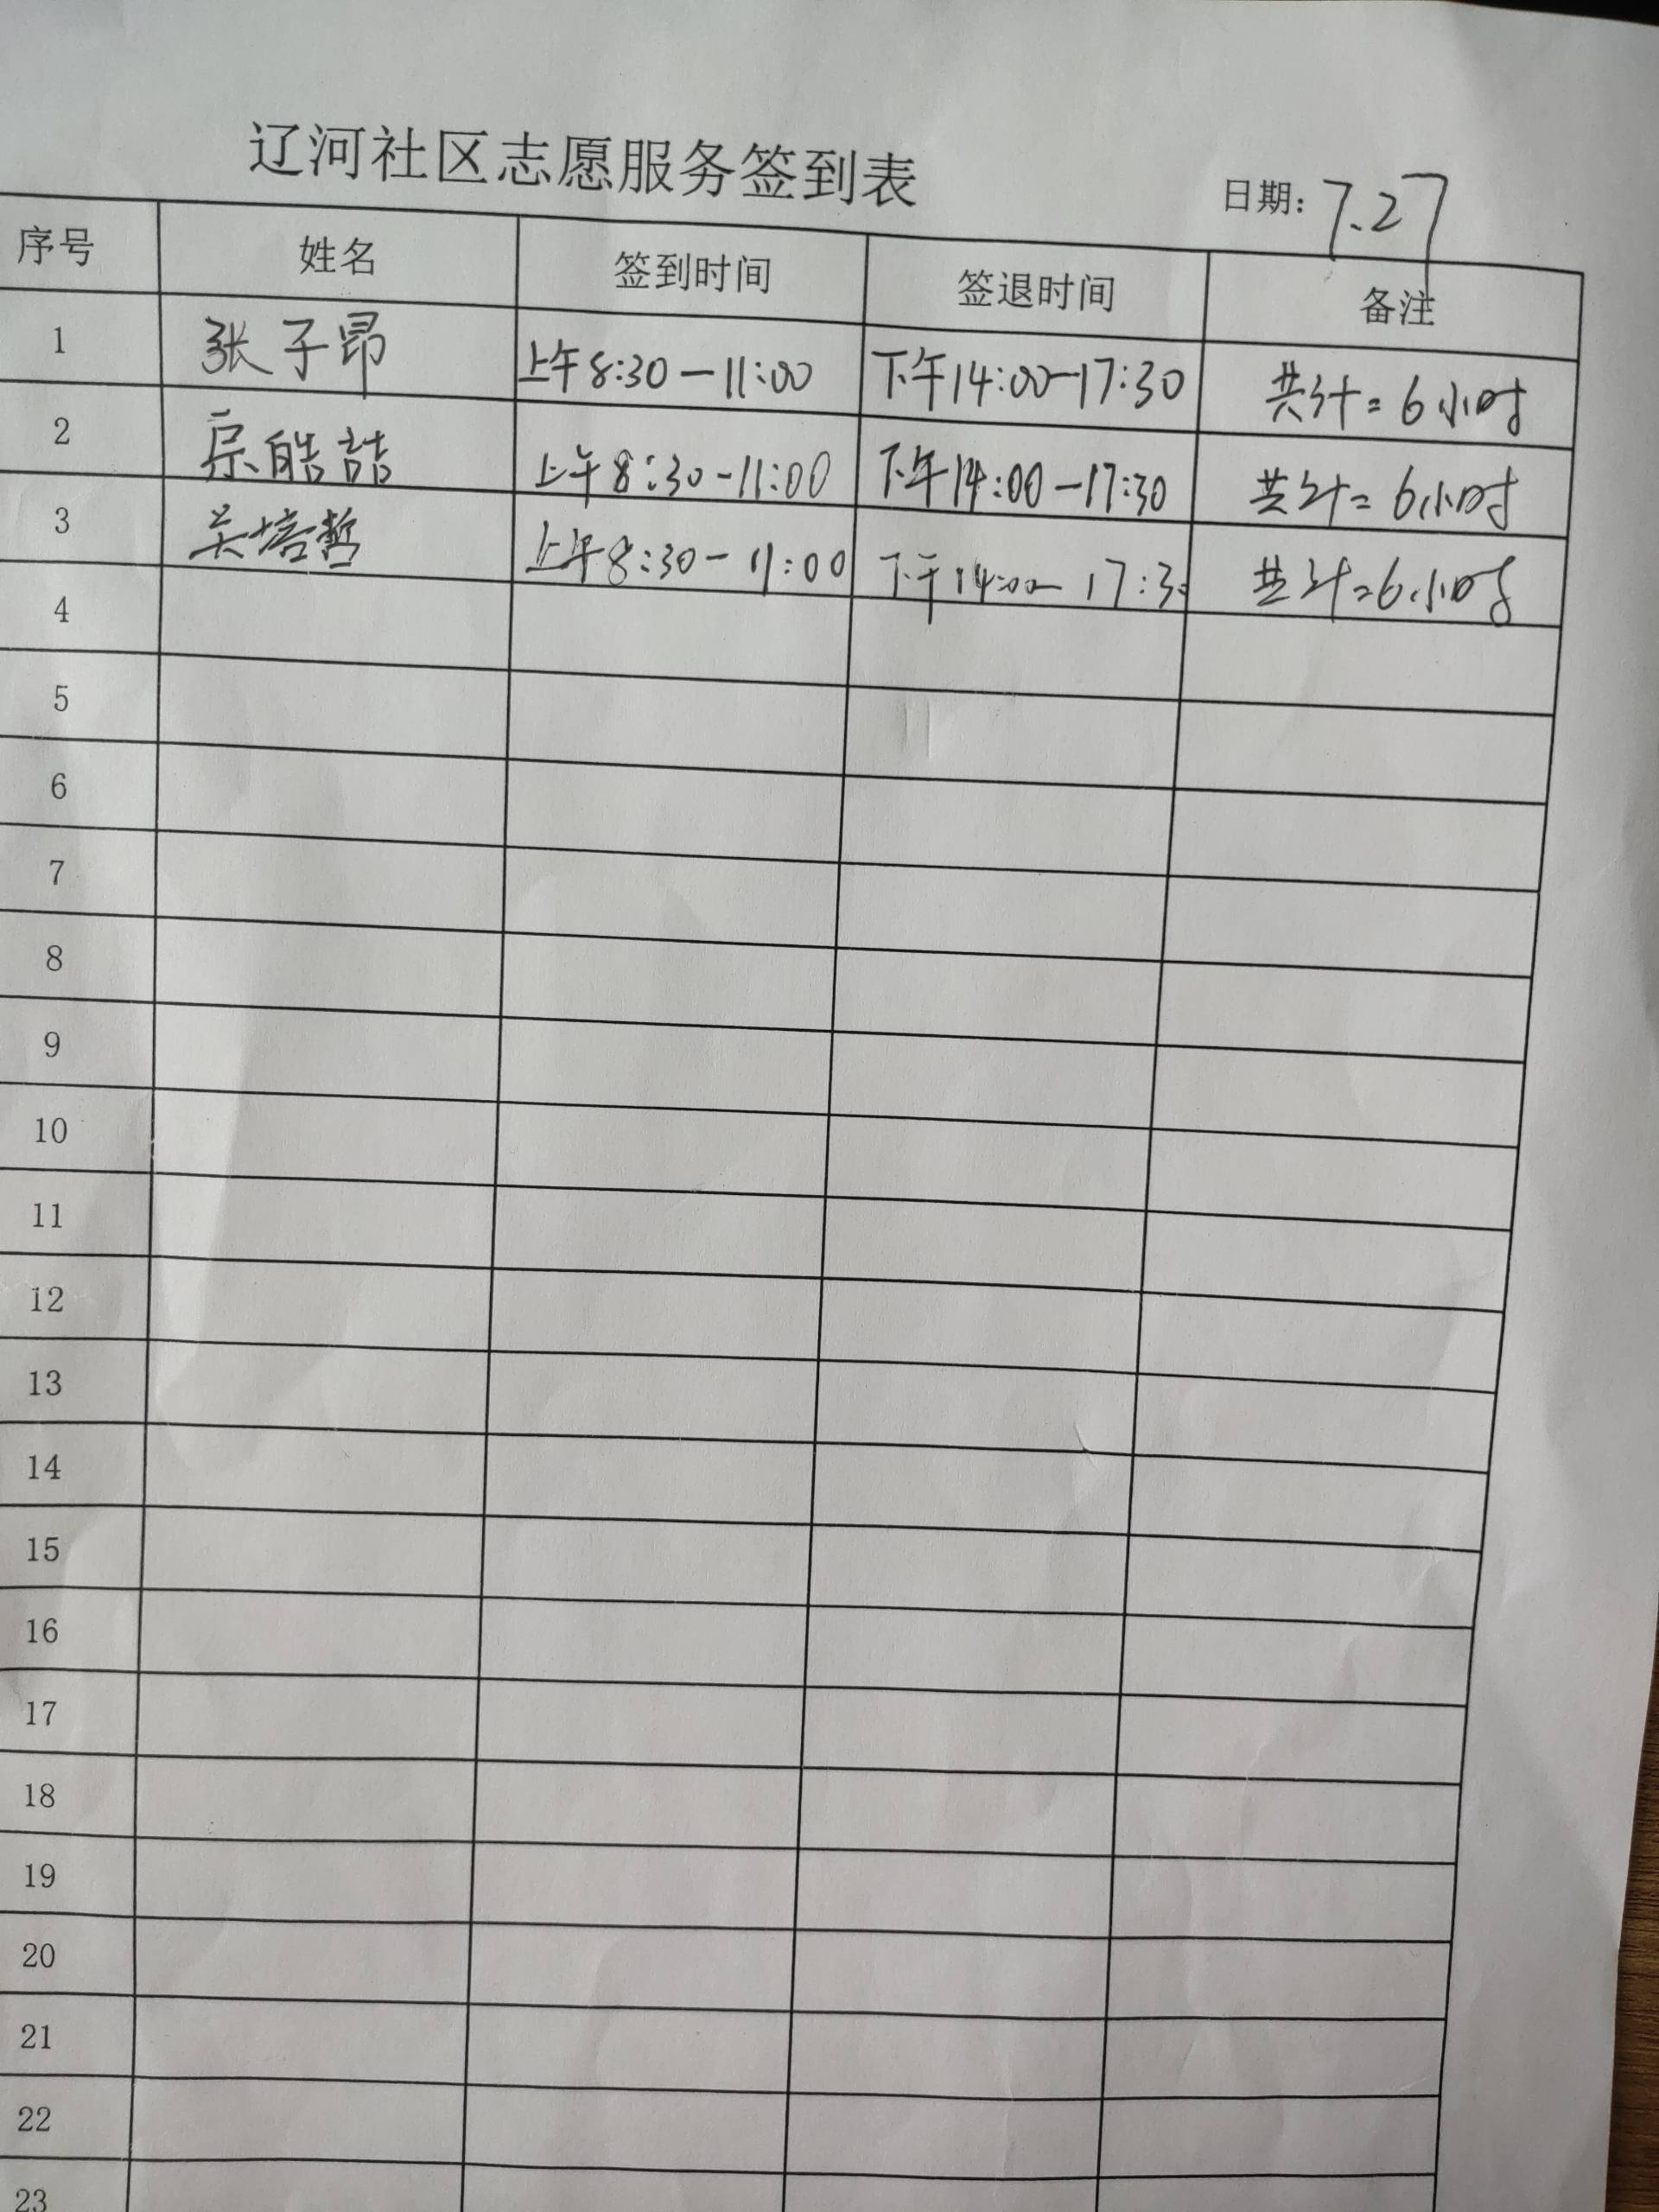 辽河社区志愿服务签到表
日期: 7.27
序号 姓名 签到时间 签退时间 备注
1 张子昂 上午8:30-11:00 下午14:00-17:30 共计=6小时
2 宗皓喆 上午8:30-11:00 下午14:00-17:30 共计=6小时
3 吴培哲 上午8:30-11:00 下午14:00-17:30 共计=6小时
4
5
6
7
8
9
10
11
12
13
14
15
16
17
18
19
20
21
22
23